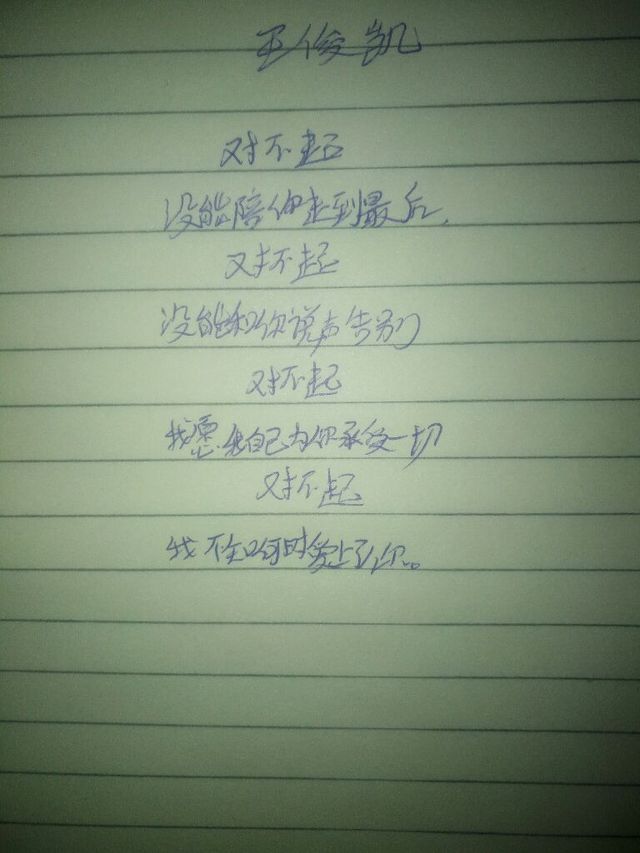 王俊凯
对不起
没能陪你走到最后.
对不起
没能和你说声告别
对不起
我愿我自己为你承受一切
对不起
我不知何时爱上了你。。